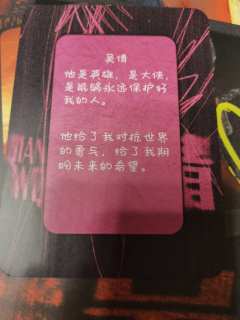 莫倩
他是英雄，是大侠，
是能够永远保护好
我的人。
他给了我对抗世界
的勇气，给了我期
盼未来的希望。